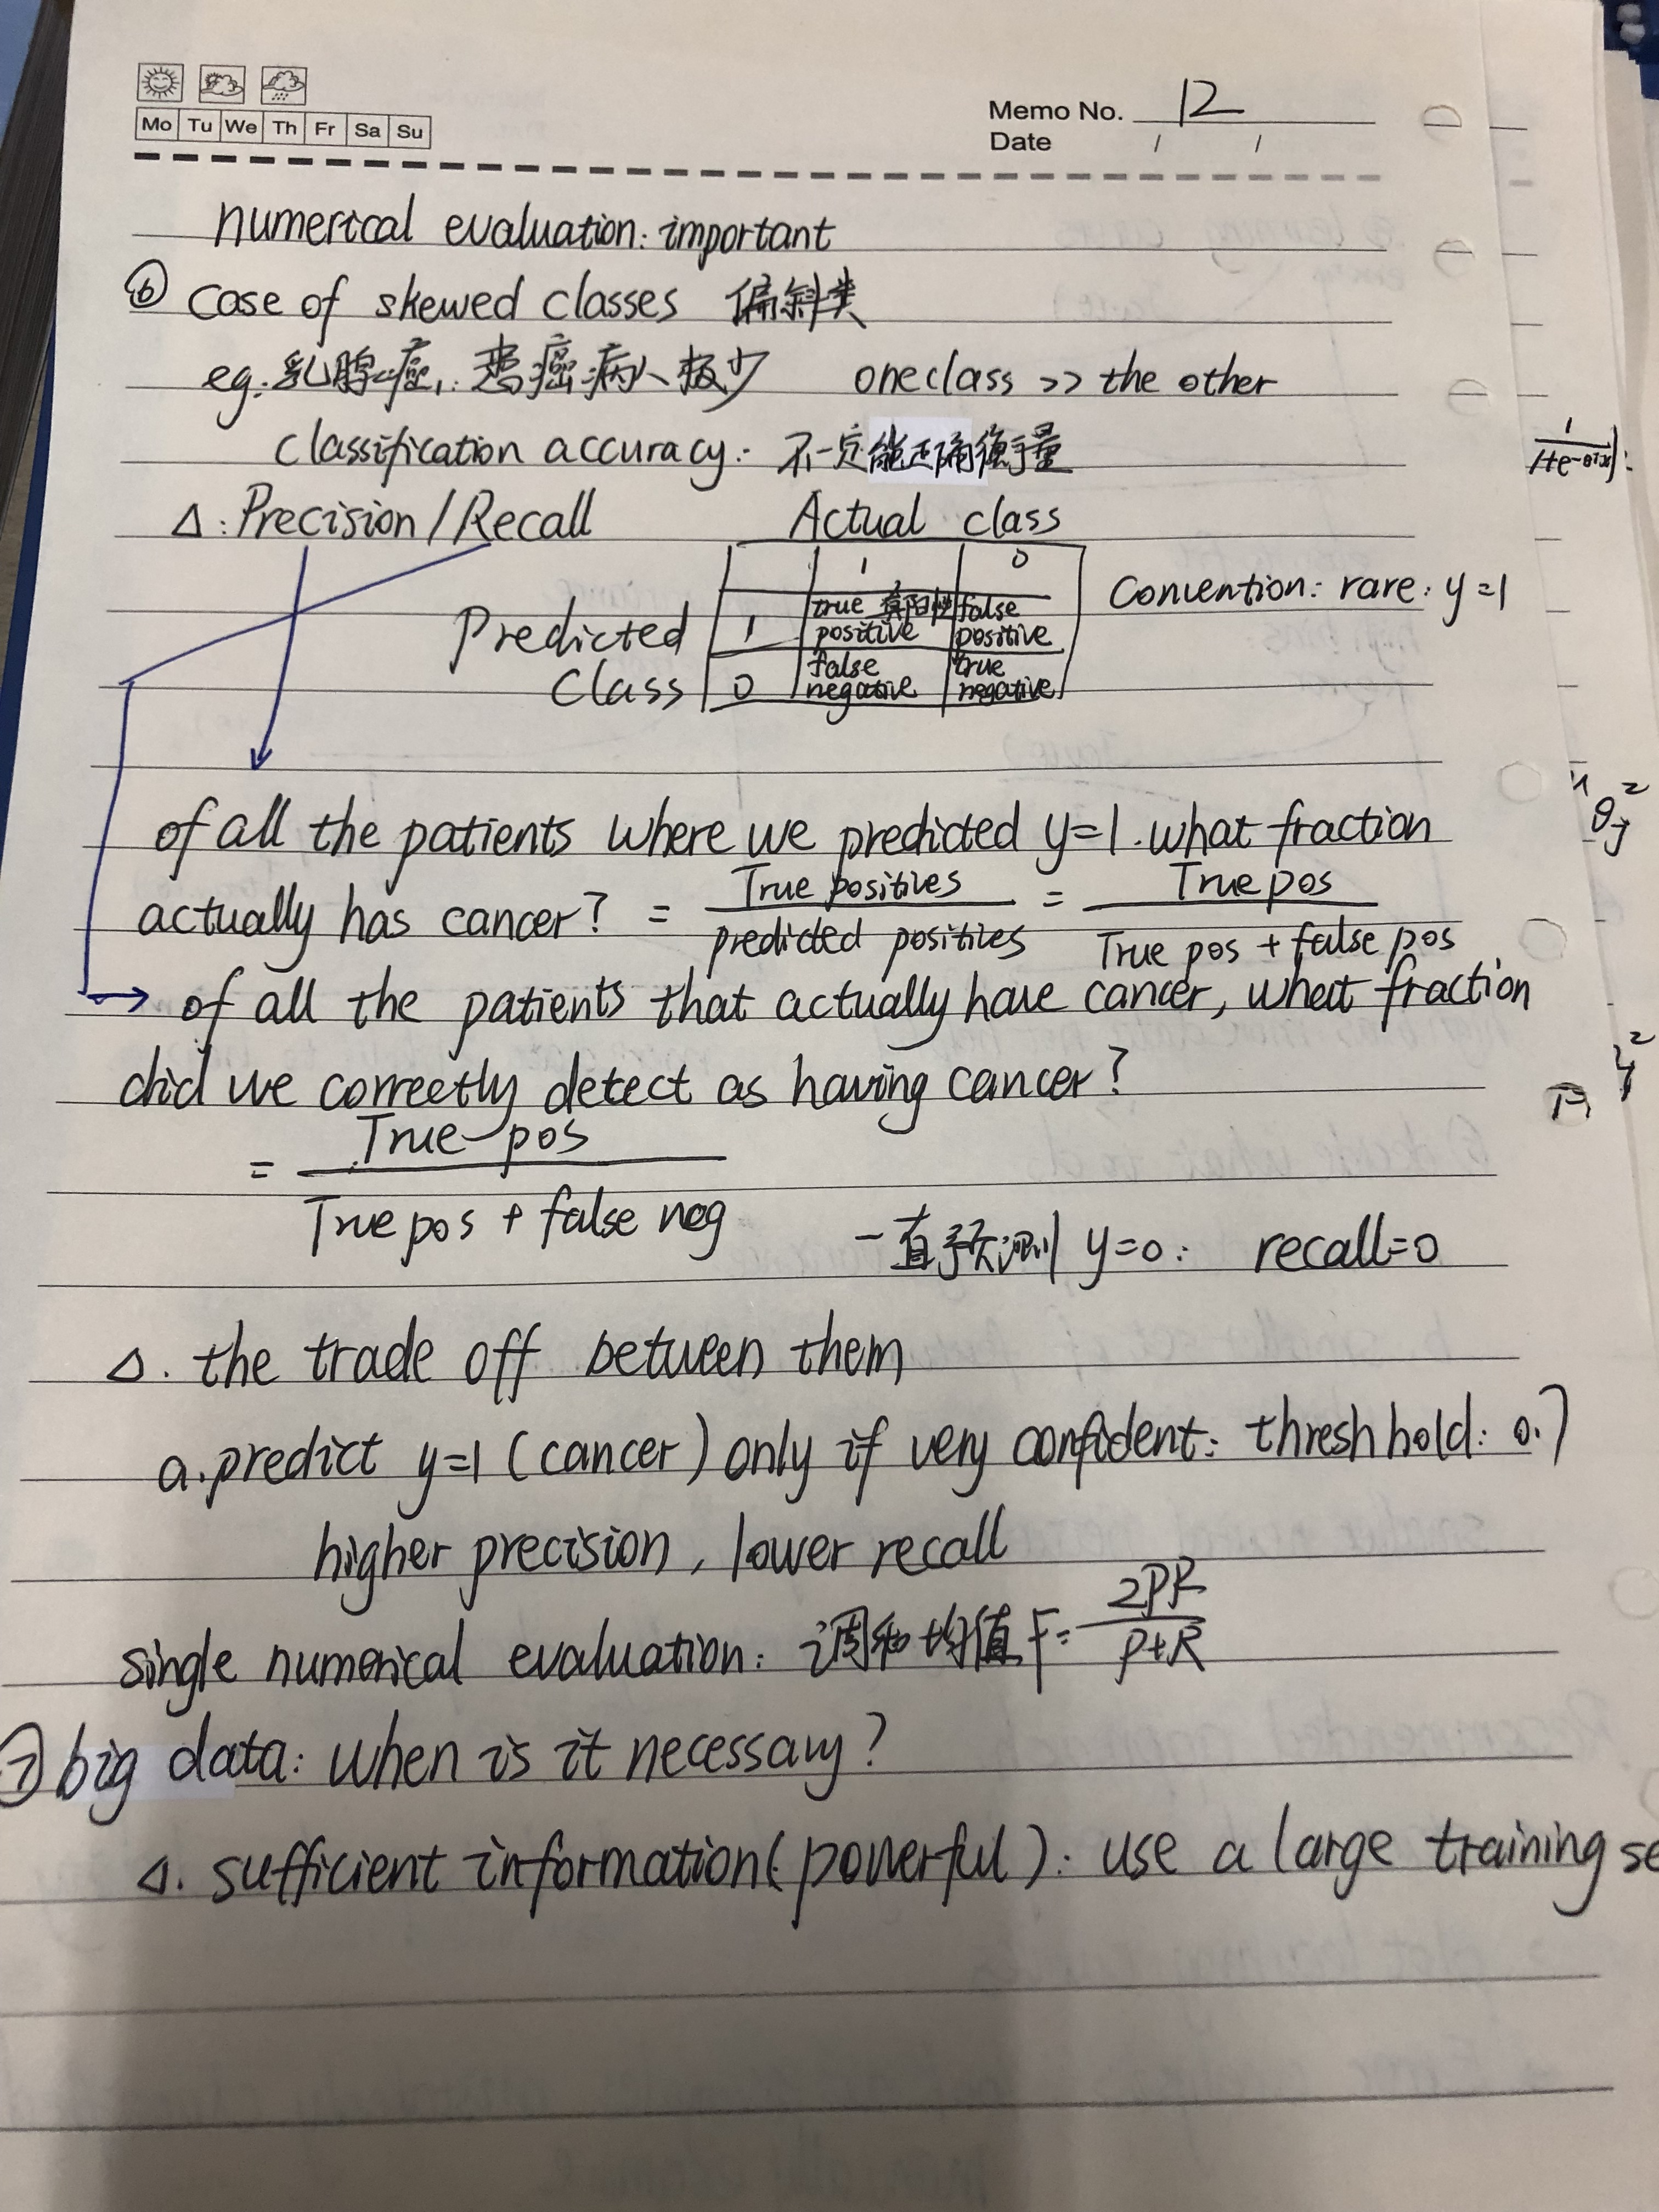 Mo Tu We Th Fr Sa Su
Memo No. 12
Date / /
numerical evaluation: important
⑥ case of skewed classes 偏斜类
eg. 乳腺癌: 患癌病人极少 one class >> the other
classification accuracy: 不一定能正确衡量
Δ: Precision/Recall Actual class
1 0
Convention: rare: y=1
Predicted 1 true 真阳性 positive false positive
Class 0 false negative true negative
of all the patients where we predicted y=1. what fraction
actually has cancer? = True positives / predicted positives = True pos / True pos + false pos
→ of all the patients that actually have cancer, what fraction
did we correctly detect as having cancer?
= True pos / True pos + false neg
一直预测 y=0: recall=0
Δ. the trade off between them
a. predict y=1 (cancer) only if very confident: threshhold: 0.7
higher precision, lower recall
single numerical evaluation: 调和均值 F= 2PR / P+R
⑦ big data: when is it necessary?
Δ. sufficient information (powerful): use a large training se